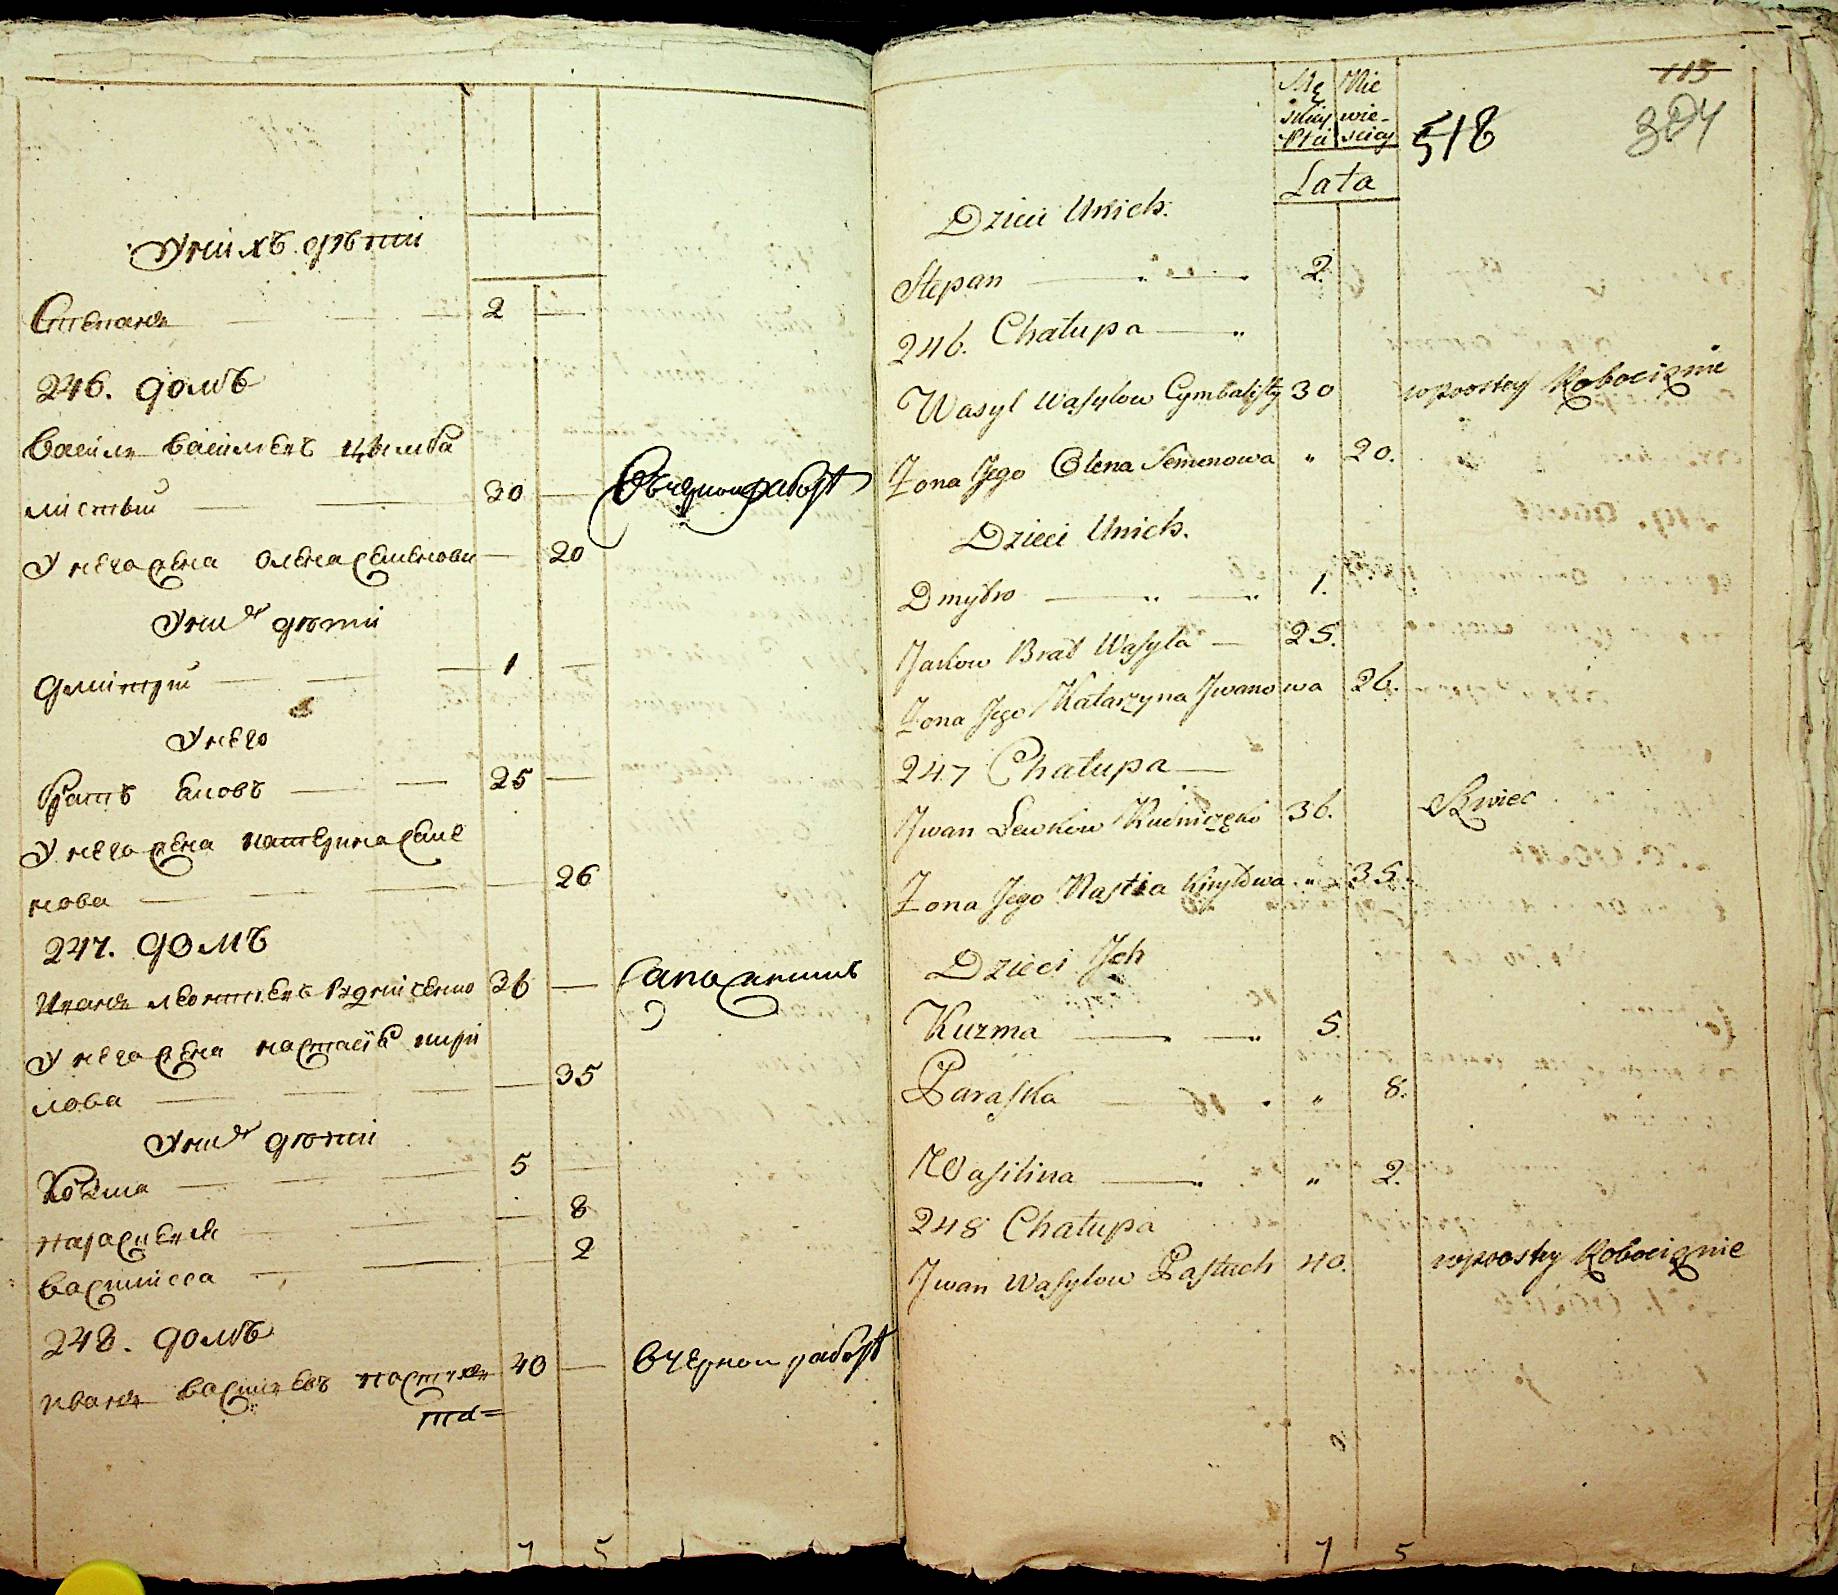 У нихъ дѣти
Степанъ 2
246. домъ
Василь Васильевъ Цымба
листый 30 В черной работѣ
У него жена Олена Семенова 20
У нихъ дѣти
Дмитрий 1
У него
братъ Яковъ 25
У него жена Катерина Семе
нова 26
247. домъ
Иванъ Леонтьевъ 36 Сапожникъ
У него жена Настасія Кири
лова 35
У нихъ дѣти
Козма 5
Параскевья 8
Василисса 2
248. домъ
Иванъ Васильевъ Пастухъ 40 В черной работѣ
7 5
Mę Nie
skiey wie-
Płci sciey
Lata
115
518
384
Dzieci Unich.
Stepan 2.
246. Chałupa
Wasyl Wasylow Cymbalisty 30 wprostey Robociznie
Żona Jego Olena Semenowa " 20.
Dzieci Unich.
Dmytro 1.
Jackow Brat Wasyla 25.
Żona Jego Katarzyna Jwanowa 26.
247 Chałupa
Jwan Lewkow 36. Szwiec
Żona Jego Nastia Kiryłowa " 35.
Dzieci Jch
Kuzma 5.
Paraska " 8.
Wasilina " 2.
248 Chałupa
Jwan Wasylow Pastuch 40. wprostey Robociznie
7 5